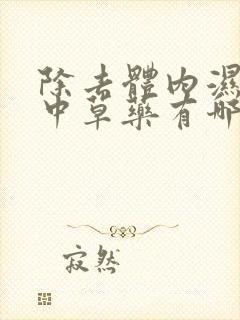 除去體內濕
中草藥有哪
寂然